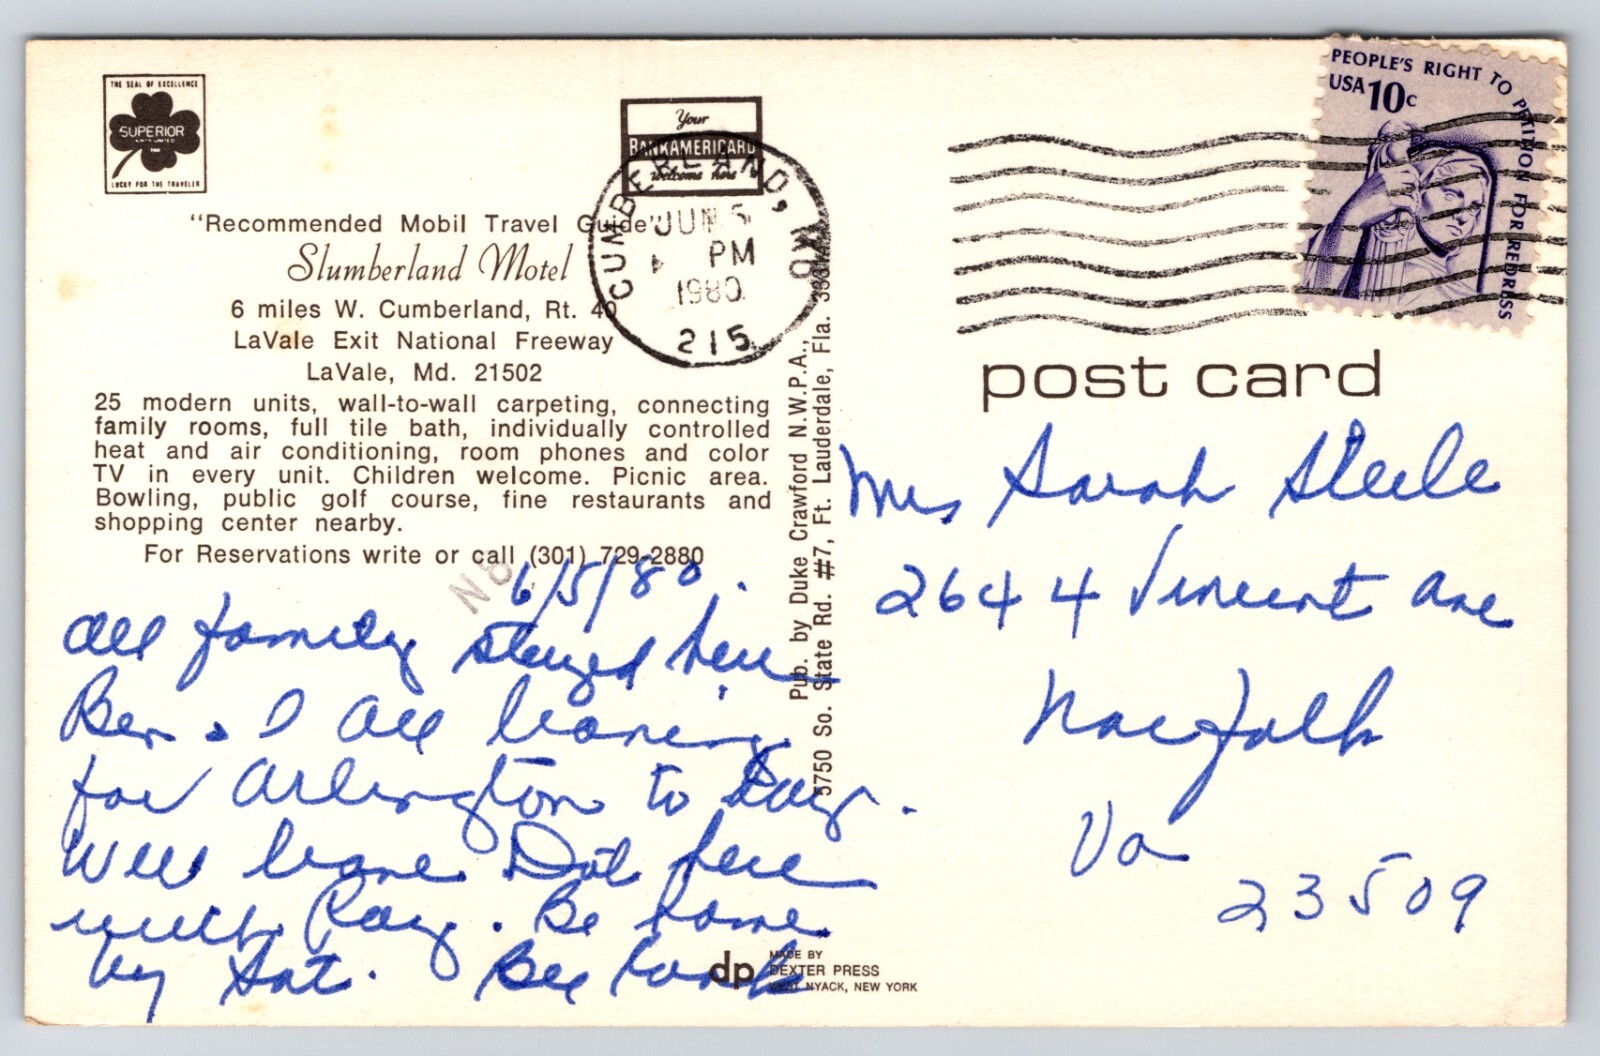 THE SEAL OF EXCELLENCE
SUPERIOR
LUCKY FOR THE TRAVELER
Your
BANKAMERICARD
welcome here
"Recommended Mobil Travel Guide"
Slumberland Motel
6 miles W. Cumberland, Rt. 40
LaVale Exit National Freeway
LaVale, Md. 21502
25 modern units, wall-to-wall carpeting, connecting
family rooms, full tile bath, individually controlled
heat and air conditioning, room phones and color
TV in every unit. Children welcome. Picnic area.
Bowling, public golf course, fine restaurants and
shopping center nearby.
For Reservations write or call (301) 729-2880
N8
6/5/80.
All family stayed here
Ben & I all leaving
for Arlington to day.
Will leave Dot here
with Ray. Be home
by Sat.
CUMBERLAND, MD
JUN 5
PM
1980
215
Pub. by Duke Crawford N.W.P.A.,
5750 So. State Rd. #7, Ft. Lauderdale, Fla.
dp
MADE BY
DEXTER PRESS
WEST NYACK, NEW YORK
PEOPLE'S RIGHT TO PETITION FOR REDRESS
USA 10c
post card
Mrs Sarah Steele
2644 Vincent Ave
Norfolk
Va
23509